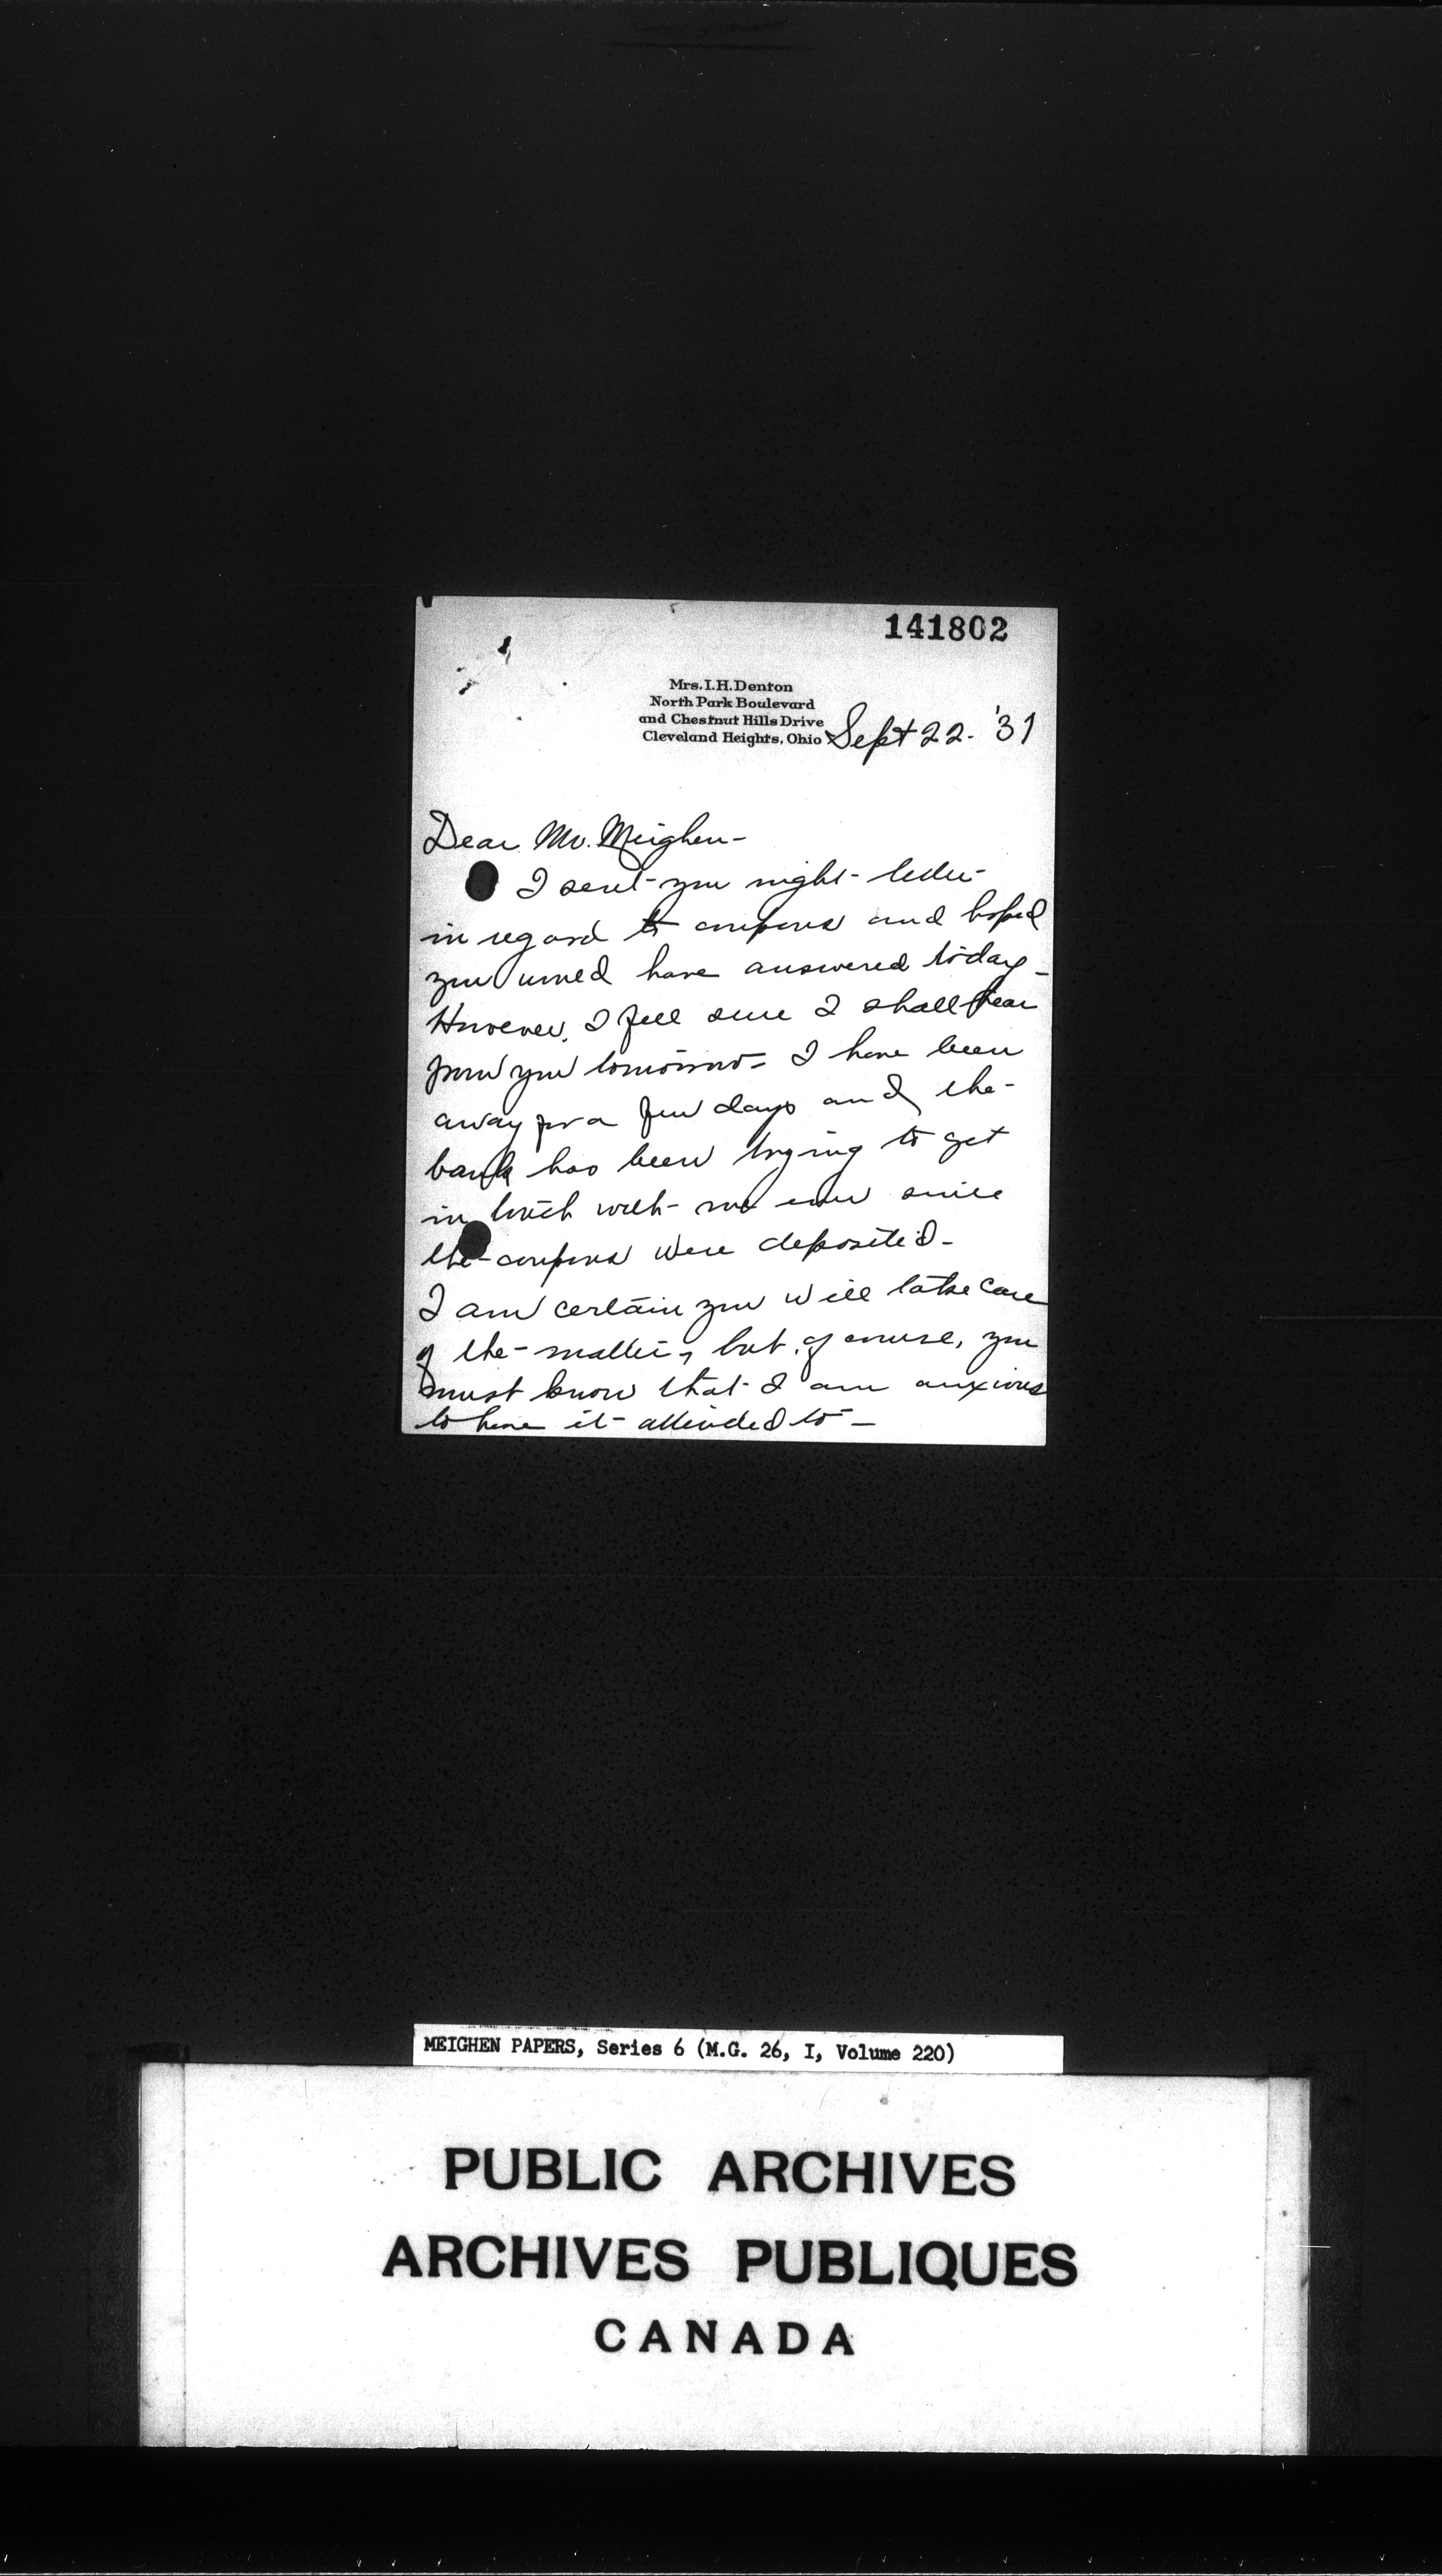 141802
Mrs. I. H. Denton
North Park Boulevard
and Chestnut Hills Drive
Cleveland Heights, Ohio
Sept 22. '31
Dear Mr. Meighen-
I sent you night-letter
in regard to coupons and hoped
you would have answered today-
However, I feel sure I shall hear
from you tomorrow- I have been
away for a few days and the
bank has been trying to get
in touch with me ever since
the coupons were deposited-
I am certain you will take care
of the matter, but, of course, you
must know that I am anxious
to have it attended to-
MEIGHEN PAPERS, Series 6 (M.G. 26, I, Volume 220)
PUBLIC ARCHIVES
ARCHIVES PUBLIQUES
CANADA